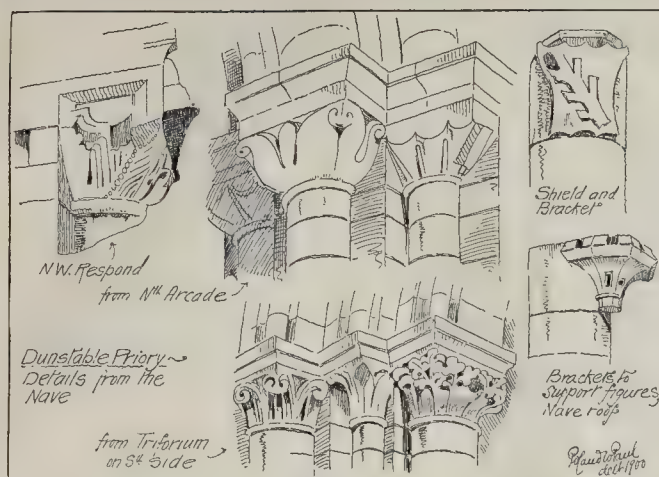 N.W. Respond
from Nth Arcade
Shield and
Bracket
Dunstable Priory
Details from the
Nave
from Triforium
on Sth Side
Brackets to
support figures,
Nave roof
delt 1900